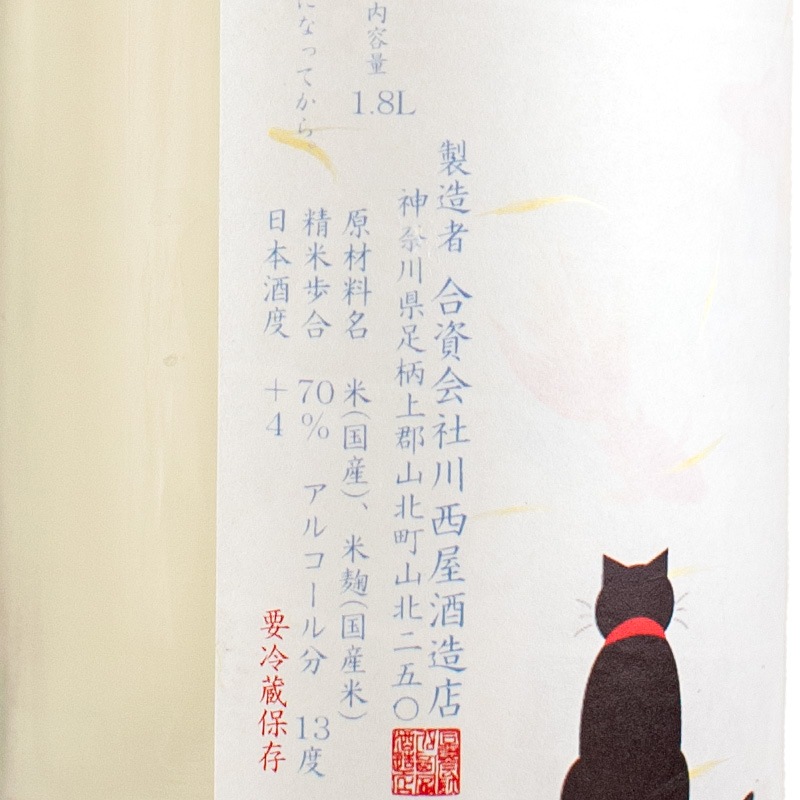 製造者 合資会社川西屋酒造店
神奈川県足柄上郡山北町山北二五〇
内容量 1.8L
原材料名 米(国産)、米麹(国産米)
精米歩合 70% アルコール分 13度
になってから、
日本酒度 +4
要冷蔵保存